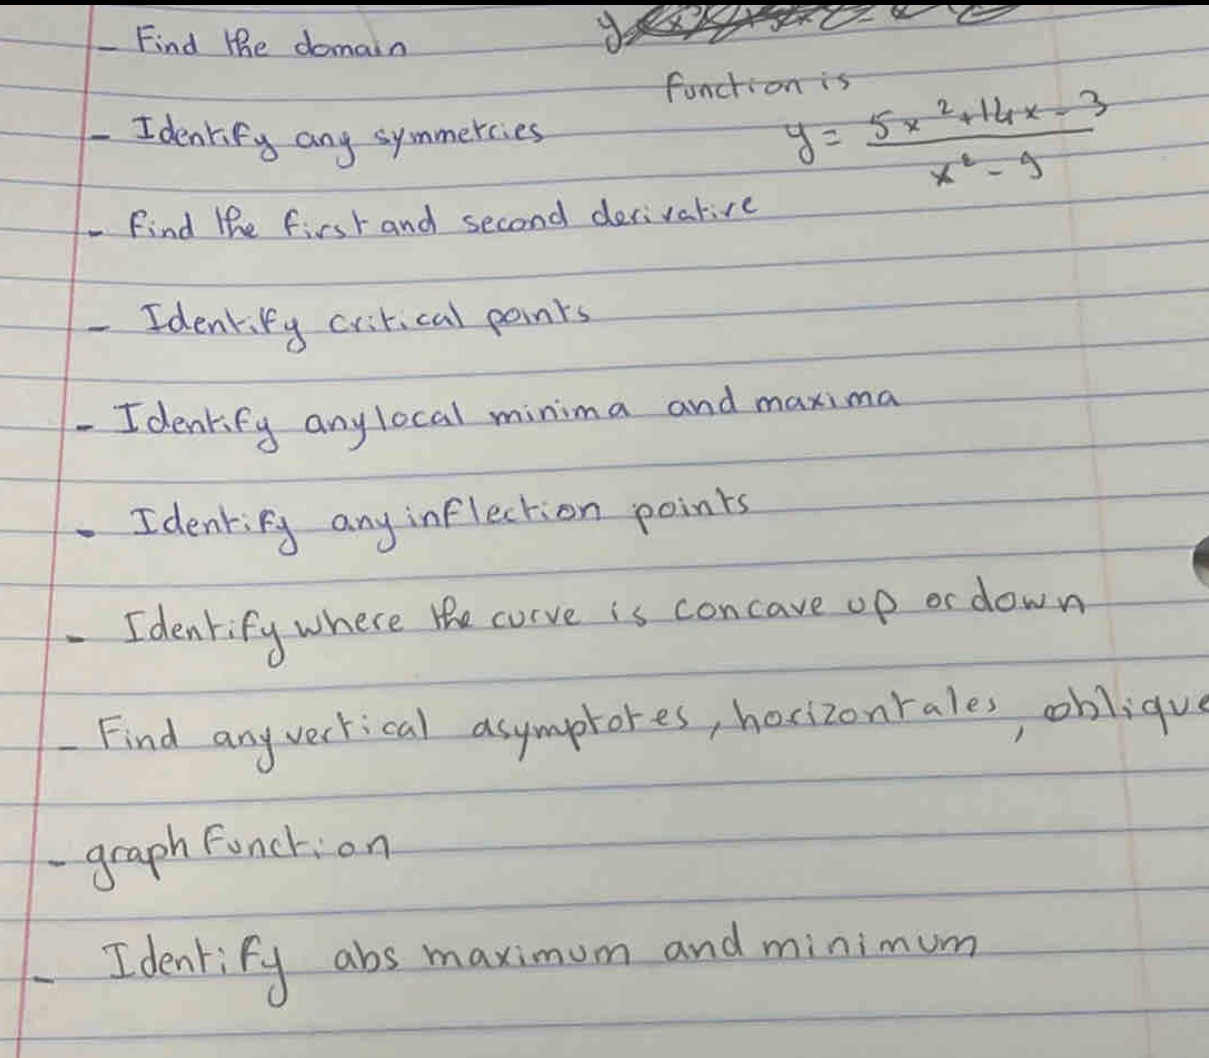 - Find the domain
function is
- Identify any symmetries
y = 5x²+14x-3 / x²-9
- find the first and second derivative
- Identify critical points
- Identify any local minima and maxima
- Identify any inflection points
- Identify where the curve is concave up or down
- Find any vertical asymptotes, horizontales, oblique
- graph function
- Identify abs maximum and minimum